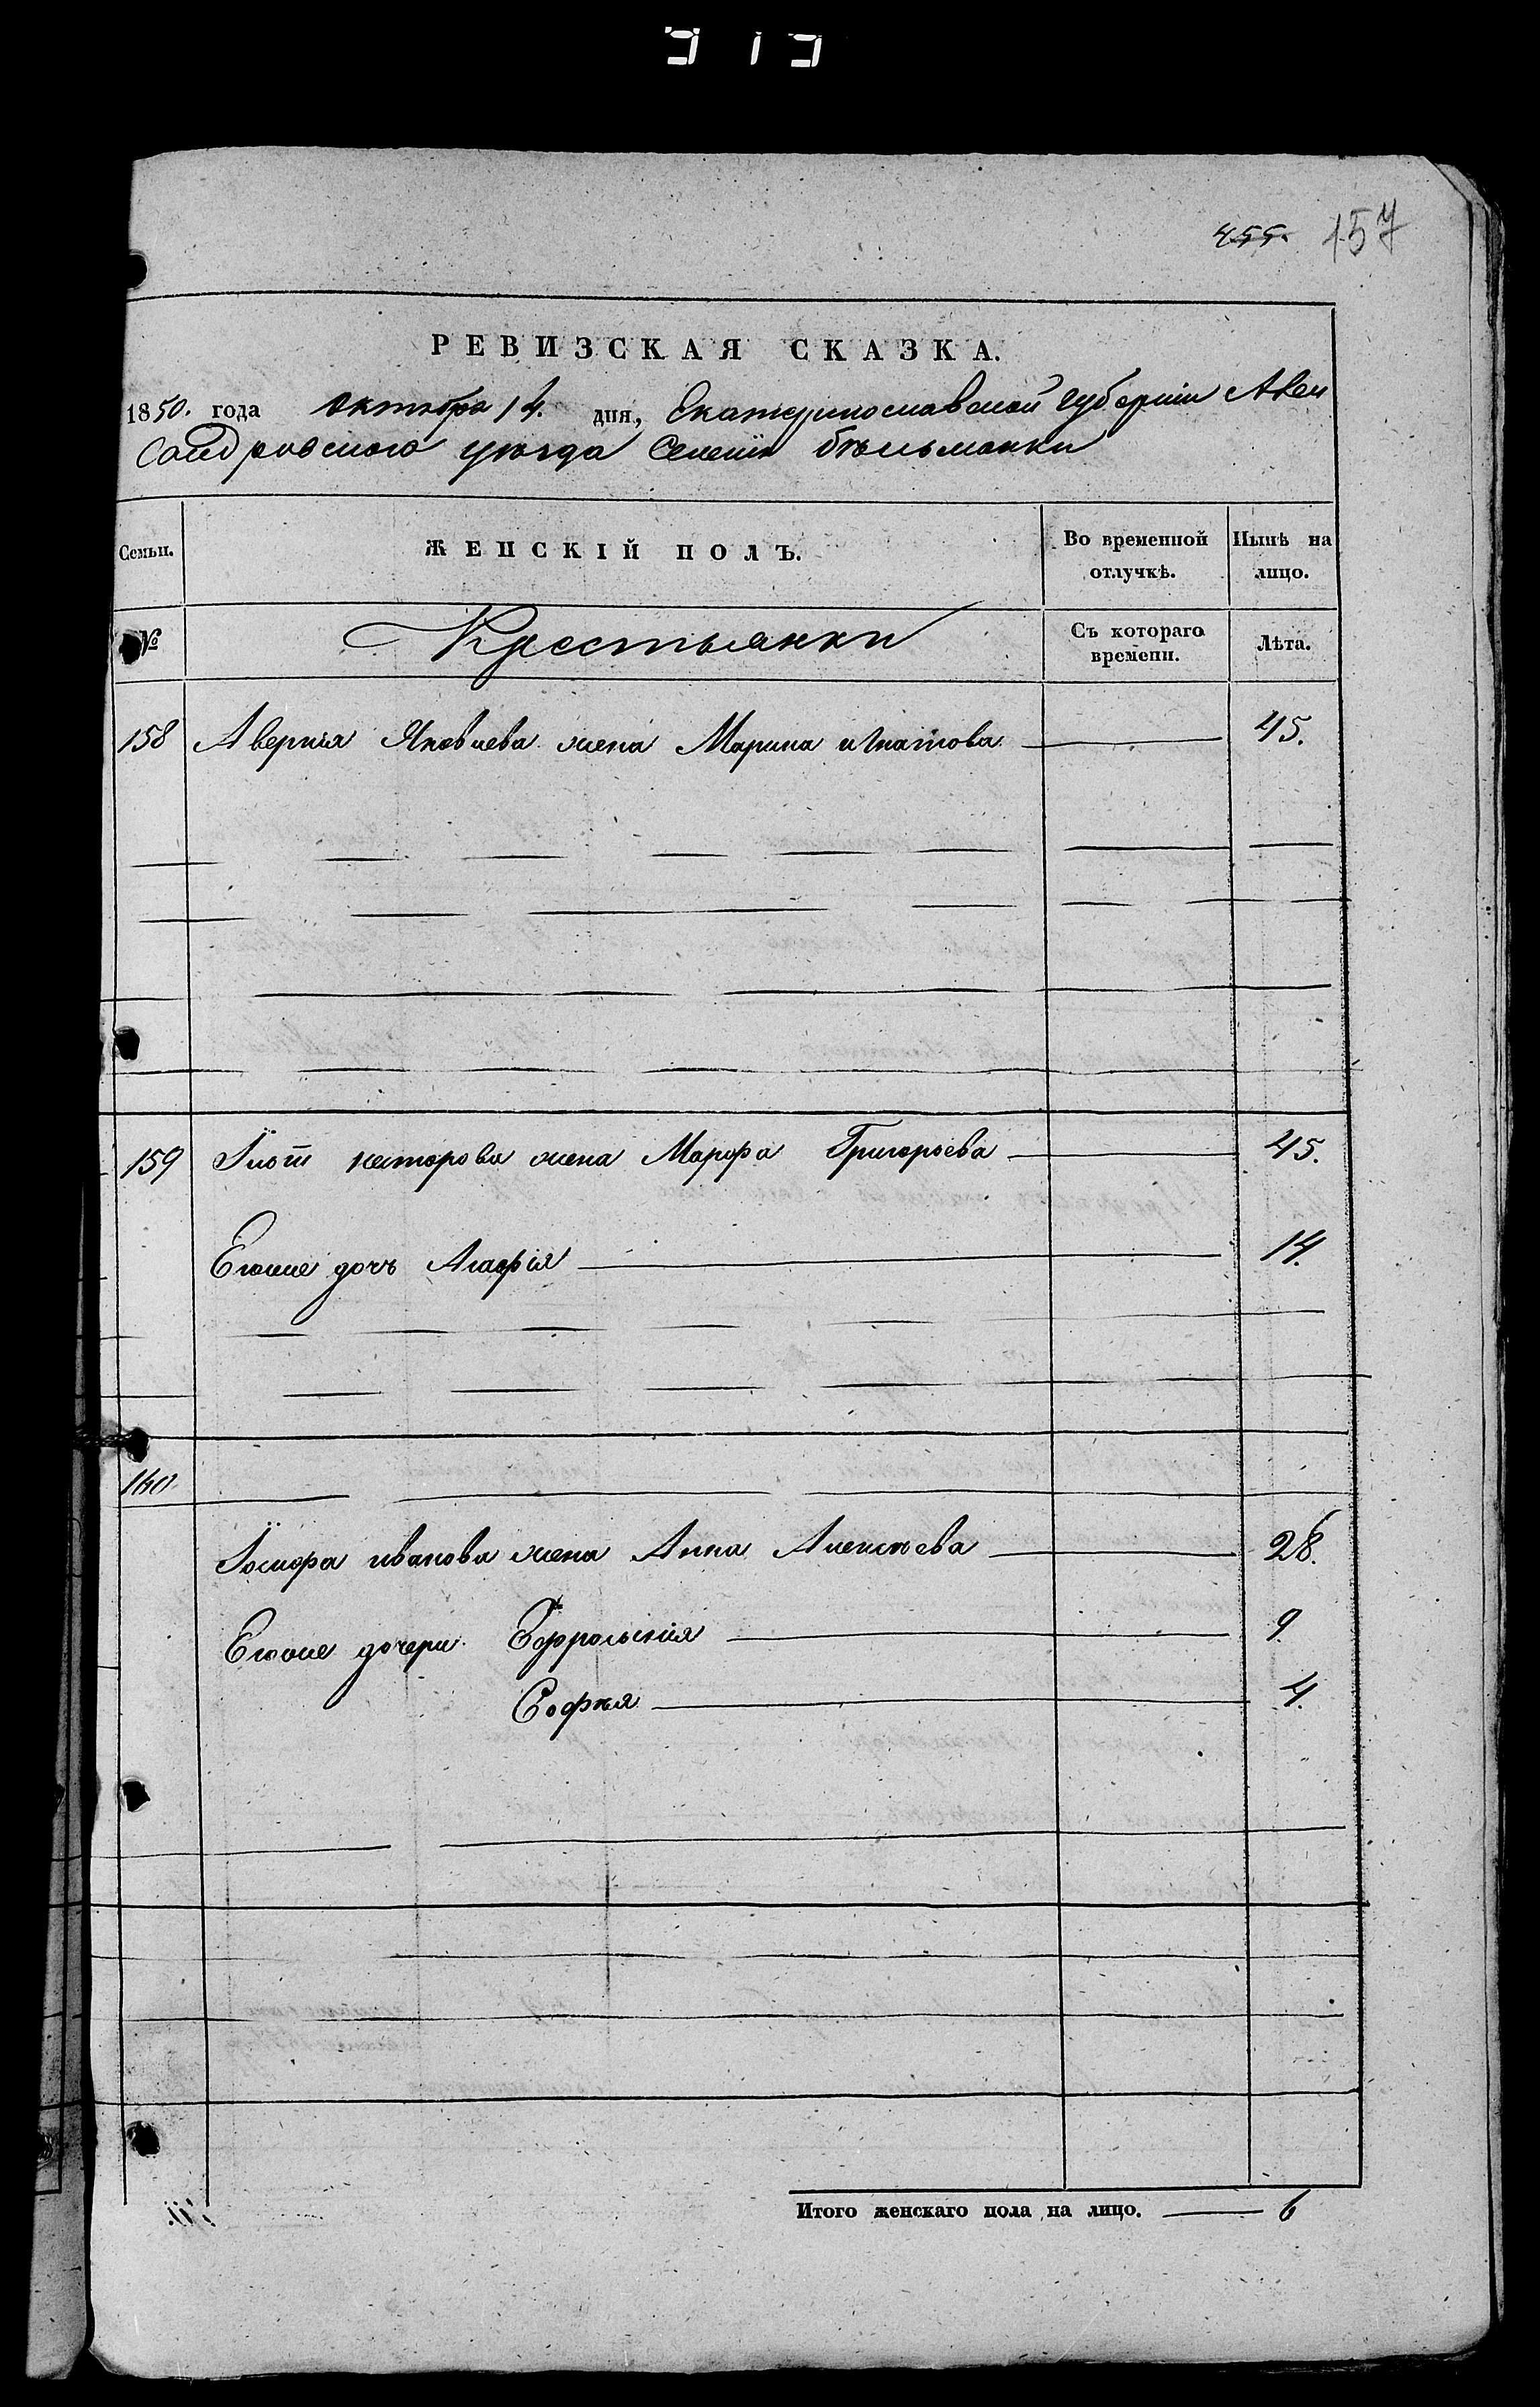 313
455. 157
РЕВИЗСКАЯ СКАЗКА.
1850. года октября 14. дня, Екатеринославской губерніи Алек
сандровского уезда Селенія бѣльманки
Семьи. ЖЕНСКІЙ ПОЛЪ. Во временной отлучкѣ. Нынѣ на лицо.
№ Крестьянки Съ котораго времени. Лѣта.
158 Аверкия Яковлева жена Марина игнатова 45.
159 несторова жена Марфа Григорьева 45.
Егоже дочь Агафія 14.
160
Іосифа иванова жена Анна Алексѣева 28.
Егоже дочери Ефросиния 9.
София 4.
Итого женскаго пола на лицо. 6